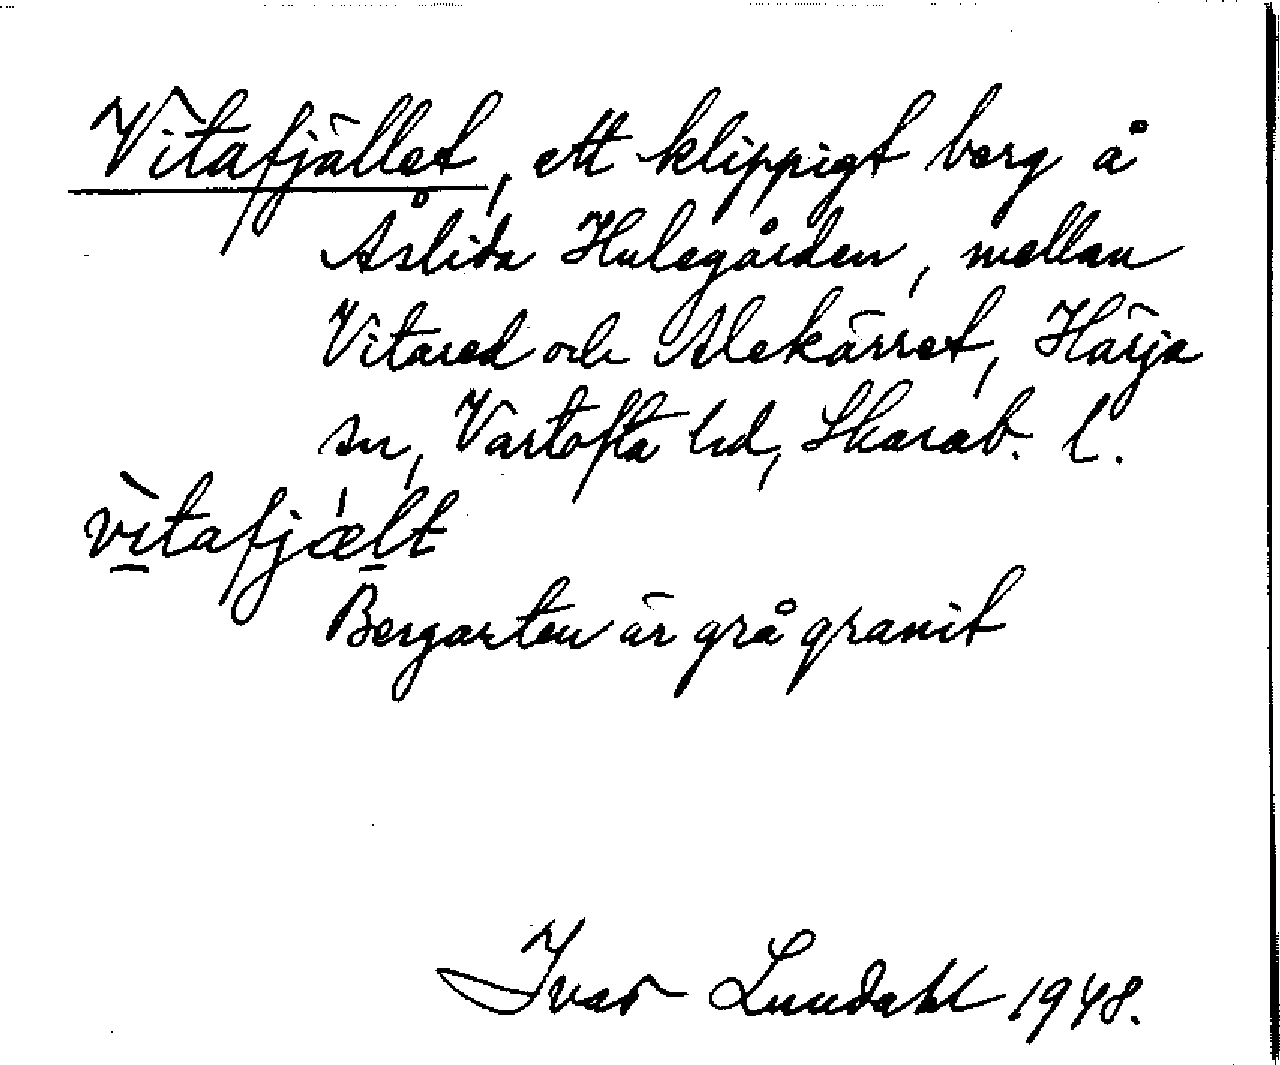 Vitafjället, ett klippigt berg å
Åslida Hulegården, mellan
Vitared och Alekärret, Härja
sn, Vartofta hd, Skarab. l.
vìtafjæ̍lt
Bergarten är grå granit
Ivar Lundahl 1948.